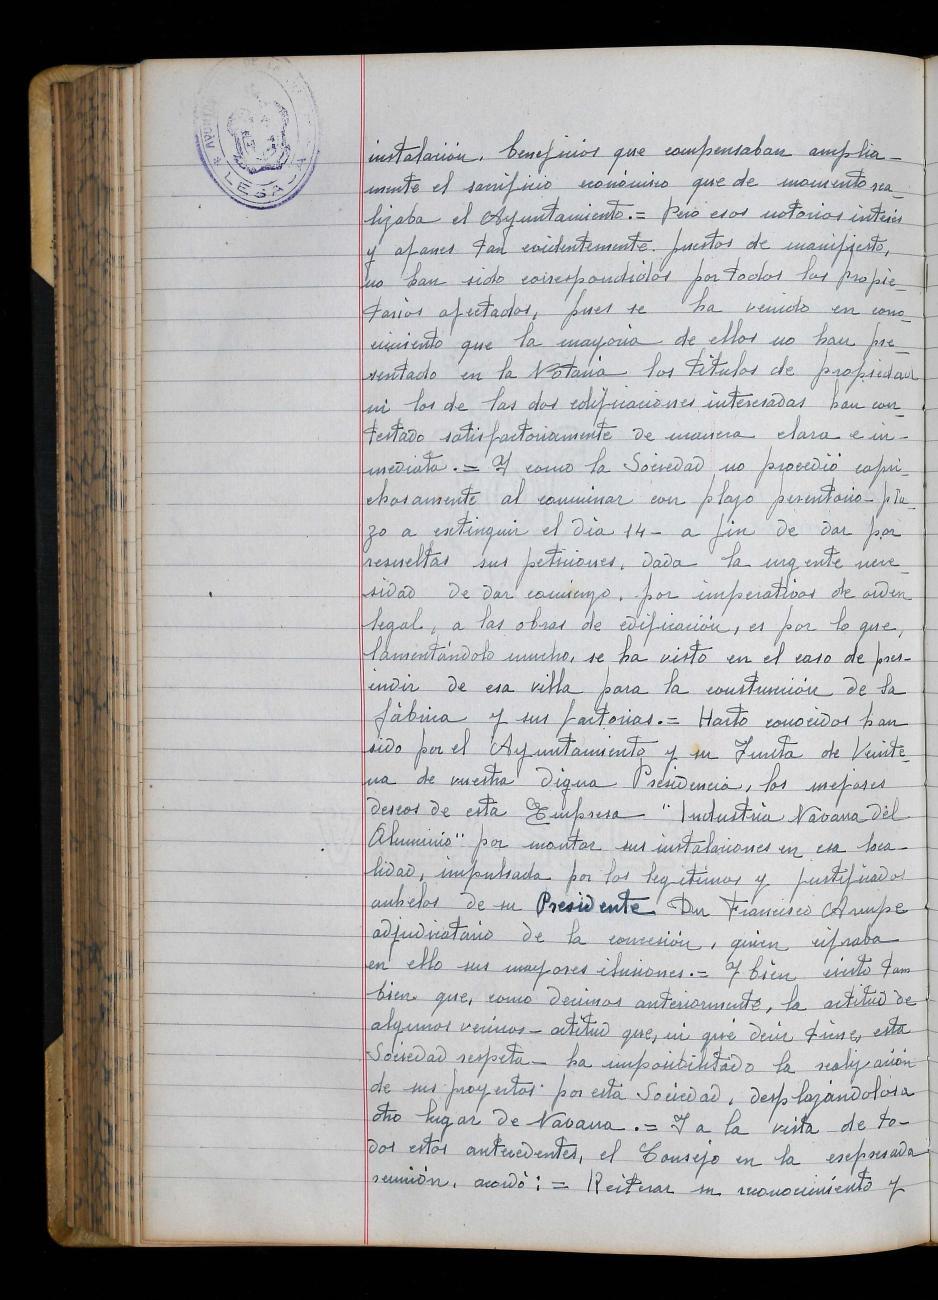 AYUNTAMIENTO
LESACA
instalación, beneficios que compensaban amplia-
mente el sacrificio económico que de momento rea-
lizaba el Ayuntamiento.= Pero esos notorios interés
y afanes tan evidentemente puestos de manifiesto,
no han sido correspondidos por todos los propie-
tarios afectados, pues se ha venido en cono-
cimiento que la mayoria de ellos no han pre-
sentado en la Notaria los titulos de propiedad
ni los de las dos edificaciones interesadas han con-
testado satisfactoriamente de manera clara e in-
mediata.= Y como la Sociedad no procedió capri-
chosamente al conminar con plazo perentorio- pla-
zo a extinguir el dia 14- a fin de dar por
resueltas sus peticiones, dada la urgente nece-
sidad de dar comienzo, por imperativos de orden
legal, a las obras de edificación, es por lo que,
lamentándolo mucho, se ha visto en el caso de pres-
indir de esa villa para la construcción de la
fábrica y sus factorias.= Harto conocidos han
sido por el Ayuntamiento y su Junta de Veinte-
na de vuestra digna Presidencia, los mejores
deseos de esta Empresa "Industria Navarra del
Aluminio" por montar sus instalaciones en esa loca-
lidad, impulsada por los legitimos y justificados
anhelos de su Presidente Don Francisco Arrupe
adjudicatario de la concesión, quien cifraba
en ello sus mayores ilusiones.= Y bien cierto tam
bien que, como decimos anteriormente, la actitud de
algunos vecinos- actitud que, ni qué decir tiene, esta
Sociedad respeta- ha imposibilitado la realización
de sus proyectos por esta Sociedad, desplazándolos a
otro lugar de Navarra.= Y a la vista de to-
dos estos antecedentes, el Consejo en la expresada
reunión, acordó:= Reiterar su reconocimiento y